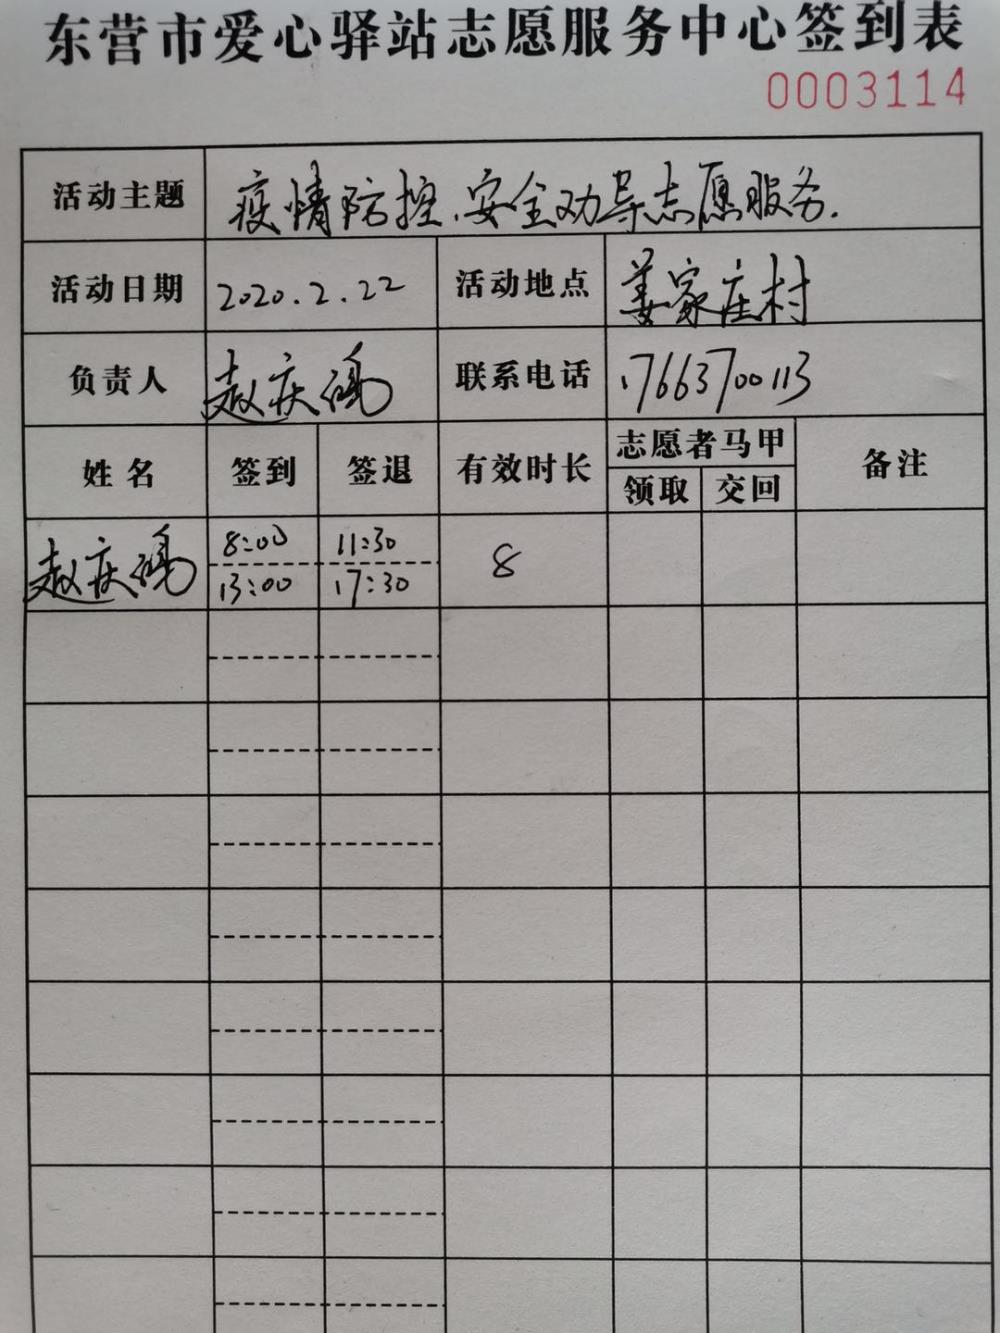 东营市爱心驿站志愿服务中心签到表
0003114
活动主题 疫情防控、安全劝导志愿服务.
活动日期 2020.2.22 活动地点 姜家庄村
负责人 赵庆鸿 联系电话 17663700113
姓名 签到 签退 有效时长 志愿者马甲 备注
领取 交回
赵庆鸿 8:00 11:30 8
13:00 17:30